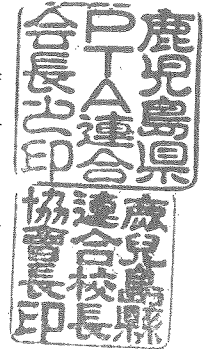 鹿児島県
PTA連合
会長之印
鹿兒島縣
連合校長
協會長印